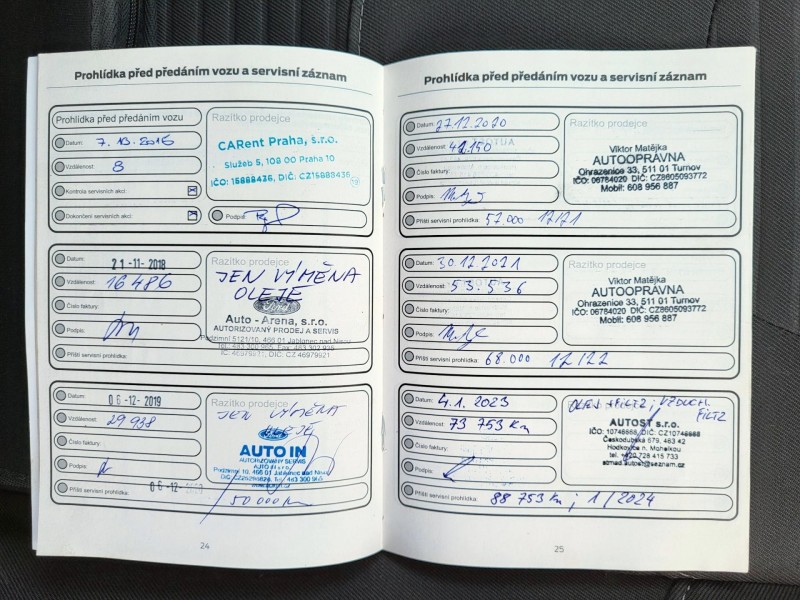 Prohlídka před předáním vozu a servisní záznam
Prohlídka před předáním vozu
Datum: 7. 10. 2016
Vzdálenost: 8
Kontrola servisních akcí:
Dokončení servisních akcí:
Razítko prodejce
CARent Praha, s.r.o.
Služeb 5, 108 00 Praha 10
IČO: 15888436, DIČ: CZ15888436
Podpis:
Datum: 21-11-2018
Vzdálenost: 16 486
Číslo faktury:
Podpis:
Příští servisní prohlídka:
Razítko prodejce
JEN VÝMĚNA
OLEJE
Ford
Auto - Arena, s.r.o.
AUTORIZOVANÝ PRODEJ A SERVIS
Podzimní 5121/10, 466 01 Jablonec nad Nisou
Datum: 06-12-2019
Vzdálenost: 29 938
Číslo faktury:
Podpis:
Příští servisní prohlídka: 06-12-
Razítko prodejce
JEN VÝMĚNA
OLEJE
AUTO IN
AUTORIZOVANÝ SERVIS
50 000 km
24
Prohlídka před předáním vozu a servisní záznam
Datum: 27.12.2020
Vzdálenost: 42.150
Číslo faktury:
Podpis:
Příští servisní prohlídka: 57.000 12/21
Razítko prodejce
Viktor Matějka
AUTOOPRAVNA
Ohrazenice 33, 511 01 Turnov
IČO: 06784020 DIČ: CZ8605093772
Mobil: 608 956 887
Datum: 30.12.2021
Vzdálenost: 53.536
Číslo faktury:
Podpis:
Příští servisní prohlídka: 68.000 12/22
Razítko prodejce
Viktor Matějka
AUTOOPRAVNA
Ohrazenice 33, 511 01 Turnov
IČO: 06784020 DIČ: CZ8605093772
Mobil: 608 956 887
Datum: 4.1.2023
Vzdálenost: 73 753 km
Číslo faktury:
Podpis:
Příští servisní prohlídka: 88 753 km; 1/2024
OLEJ + FILTR; VZDUCH.
FILTR
AUTOST s.r.o.
IČO: 10746668, DIČ: CZ10746668
Českodubská 679, 463 42
Hodkovice n. Mohelkou
tel. +420 728 415 733
25